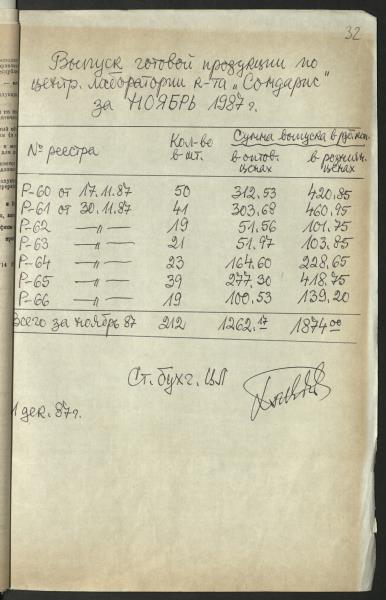 32
Выпуск готовой продукции по
центр. лаборатории к-та „Сондарис"
за НОЯБРЬ 1987 г.
№ реестра Кол-во в шт. Сумма выпуска в рублях
в оптов. ценах в рознич. ценах
Р-60 от 17.11.87 50 312.53 420.85
Р-61 от 30.11.87 41 303.68 460.95
Р-62 —〃— 19 51.56 101.75
Р-63 —〃— 21 51.97 103.85
Р-64 —〃— 23 164.60 228.65
Р-65 —〃— 39 277.30 418.75
Р-66 —〃— 19 100.53 139.20
Всего за ноябрь 87 212 1262.17 1874.00
Ст. бухг. ЦЛ
1 дек. 87 г.